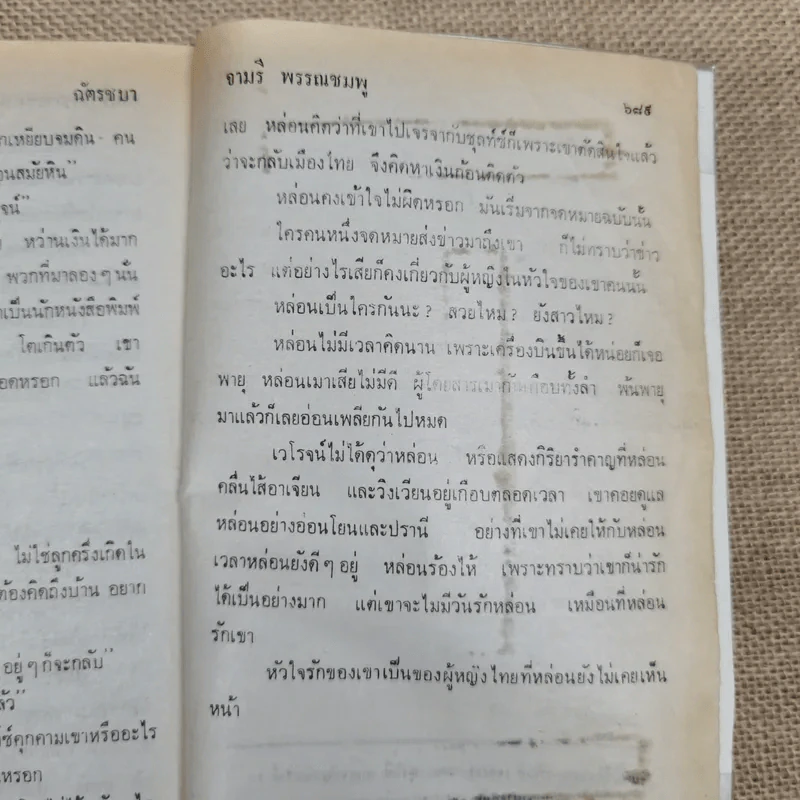 ฉัตรชบา
เหยียบจมดิน - คน
อนสมัยหิน"
จน์"
หว่านเงินได้มาก
พวกที่มาลองๆ นั้น
าเป็นนักหนังสือพิมพ์
โตเกินตัว เขา
อดหรอก แล้วฉัน
ไม่ใช่ลูกครึ่งเกิดใน
ต้องคิดถึงบ้าน อยาก
อยู่ๆ ก็จะกลับ"
ล้ว"
ซ์คุกคามเขาหรืออะไร
หรอก
จามรี พรรณชมพู
๖๘๙
เลย หล่อนคิดว่าที่เขาไปเจรจากับชุลท์ซ์ก็เพราะเขาตัดสินใจแล้ว
ว่าจะกลับเมืองไทย จึงคิดหาเงินก้อนติดตัว
หล่อนคงเข้าใจไม่ผิดหรอก มันเริ่มจากจดหมายฉบับนั้น
ใครคนหนึ่งจดหมายส่งข่าวมาถึงเขา ก็ไม่ทราบว่าข่าว
อะไร แต่อย่างไรเสียก็คงเกี่ยวกับผู้หญิงในหัวใจของเขาคนนั้น
หล่อนเป็นใครกันนะ? สวยไหม? ยังสาวไหม?
หล่อนไม่มีเวลาคิดนาน เพราะเครื่องบินขึ้นได้หน่อยก็เจอ
พายุ หล่อนเมาเสียไม่มีดี ผู้โดยสารเมากันเกือบทั้งลำ พ้นพายุ
มาแล้วก็เลยอ่อนเพลียกันไปหมด
เวโรจน์ไม่ได้ดุว่าหล่อน หรือแสดงกิริยารำคาญที่หล่อน
คลื่นไส้อาเจียน และวิงเวียนอยู่เกือบตลอดเวลา เขาคอยดูแล
หล่อนอย่างอ่อนโยนและปรานี อย่างที่เขาไม่เคยให้กับหล่อน
เวลาหล่อนยังดีๆ อยู่ หล่อนร้องไห้ เพราะทราบว่าเขาก็น่ารัก
ได้เป็นอย่างมาก แต่เขาจะไม่มีวันรักหล่อน เหมือนที่หล่อน
รักเขา
หัวใจรักของเขาเป็นของผู้หญิงไทยที่หล่อนยังไม่เคยเห็น
หน้า